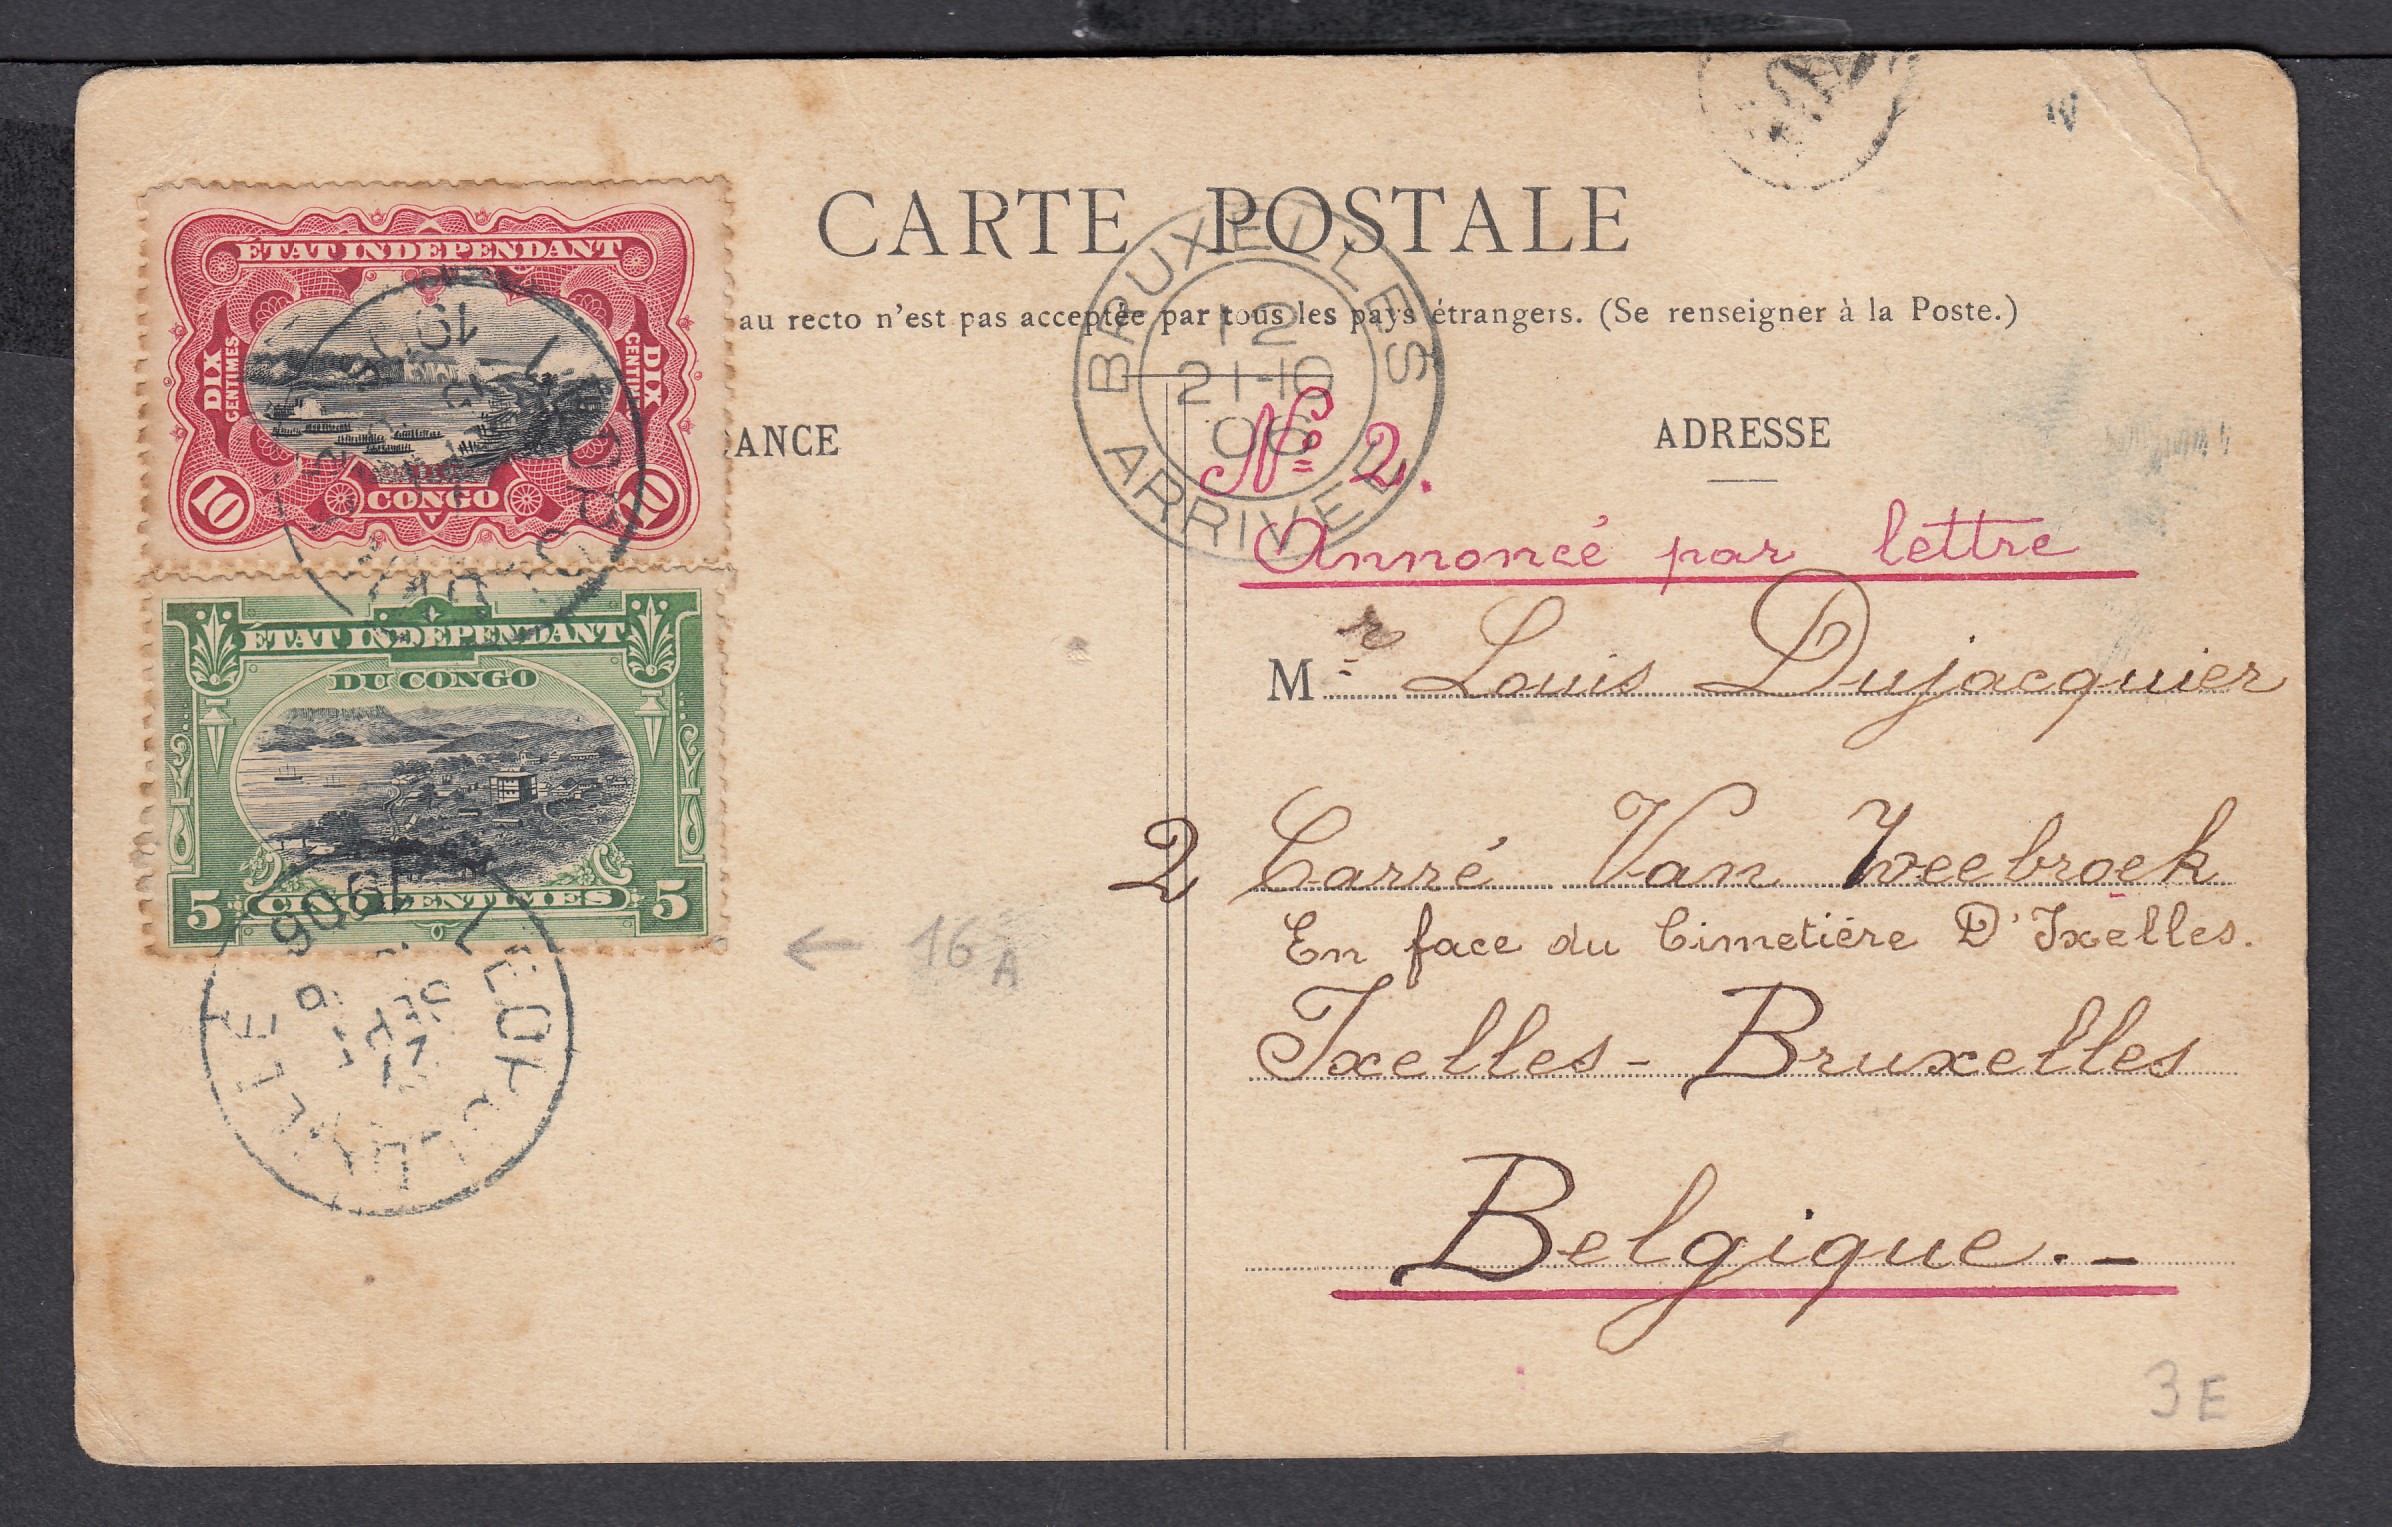 CARTE POSTALE
au recto n'est pas acceptée par tous les pays étrangers. (Se renseigner à la Poste.)
ANCE
ADRESSE
ÉTAT INDÉPENDANT
DIX CENTIMES
DIX CENTIMES
DU
CONGO
10
10
ÉTAT INDÉPENDANT
DU CONGO
5
CINQ CENTIMES
5
1906
LEOPOLDVILLE
BRUXELLES
12
21-10
06
ARRIVEE
16 A
Nº 2.
Annoncé par lettre
Mr Louis Dujacquier
2 Carré Van Weebroek
En face du Cimetière D'Ixelles.
Ixelles - Bruxelles
Belgique. -
3 E